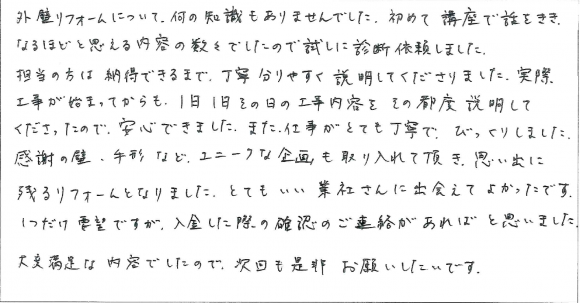 外壁リフォームについて、何の知識もありませんでした。初めて講座で話をきき、
なるほどと思える内容の数々でしたので試しに診断依頼しました。
担当の方は納得できるまで、丁寧分りやすく説明してくださりました。実際、
工事が始まってからも、1日1日その日の工事内容をその都度説明して
くださったので、安心できました。また、仕事がとても丁寧で、びっくりしました。
感謝の壁、手形など、ユニークな企画も取り入れて頂き、思い出に
残るリフォームとなりました。とてもいい業社さんに出会えてよかったです。
1つだけ要望ですが、入金した際の確認のご連絡があればと思いました。
大変満足な内容でしたので、次回も是非お願いしたいです。